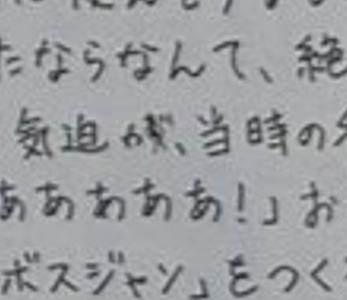 たならなんて、絶
気迫が、当時の
ああわああ!」お
ボスジャン」をつく